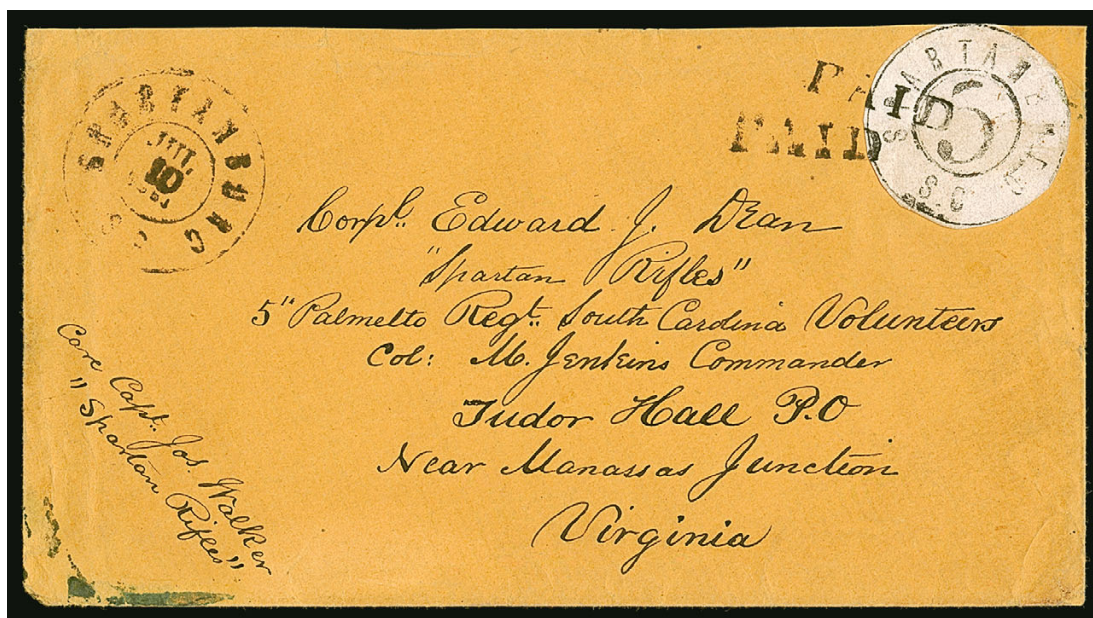 SPARTANBURG S.C
JUL
10
1861
PAID
PAID
SPARTANBURG
5
S.C
Corpl. Edward J. Dean
"Spartan Rifles"
5" Palmetto Regt. South Carolina Volunteers
Col: M. Jenkins Commander
Tudor Hall P.O
Near Manassas Junction
Virginia
Care Capt. Jos Walker
"Spartan Rifles"